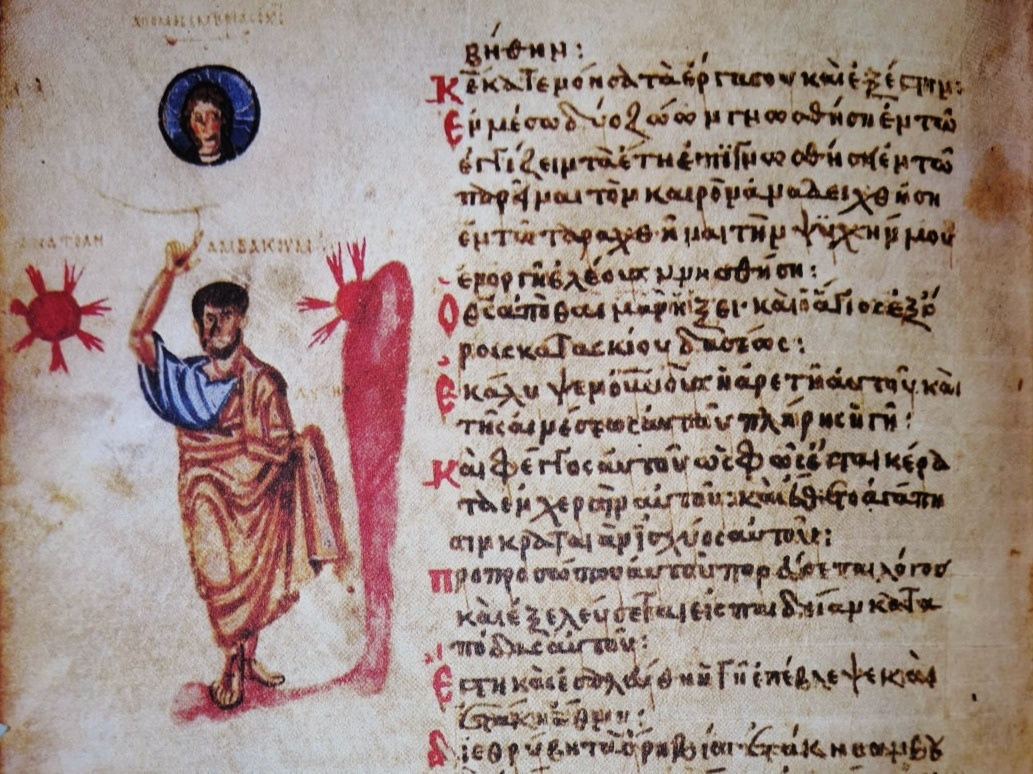 ΑΝΑΤΟΛΗ
ΑΜΒΑΚΟΥΜ
βήθην:
Κ̅ε̅ κατενόησα τὰ ἔργα σου καὶ ἐξέστην:
Ἐν μέσω δύο ζώων γνωσθήση ἐν τῶ
ἐγγίζειν τὰ ἔτη ἐπϊγνωσθήση ἐν τῶ
παρεῖναι τὸν καιρὸν ἀναδειχθήση
ἐν τῶ ταραχθῆναι τὴν ψυχήν μου
ἐν οργῆ ἐλέους μνησθήση:
Ὁ θ̅ς̅ ἀπὸ θαιμαν ἥξει· καὶ ὁ ἅγιος ἐξ ὄ
ρους κατασκίου δασέως:
Ἐκάλυψεν ὀυνους ἡ ἀρετὴ ἀυτοῦ καὶ
τῆς αινέσεως ἀυτοῦ πλήρης ἡ γῆ:
Καὶ φέγγος ἀυτοῦ ὡς φῶς ἔσται κέρα
τα ἐν χερσὶν αυτοῦ: καὶ ἔθετο ἀγάπη
αιν κραταιὰν ἰσχύος ἀυτοῦ:
Προ προσώπου ἀυτοῦ πορεύσεται λόγος
καὶ ἐξελεύσεται εἰς παιδείαν κατα
πόδας ἀυτοῦ:
Ἔστη καὶ ἐσαλεύθη ἡ γῆ ἐπέβλεψε καὶ
ἐτάκη ἔθνη:
Διεθρύβη τὰ ὄρη βία